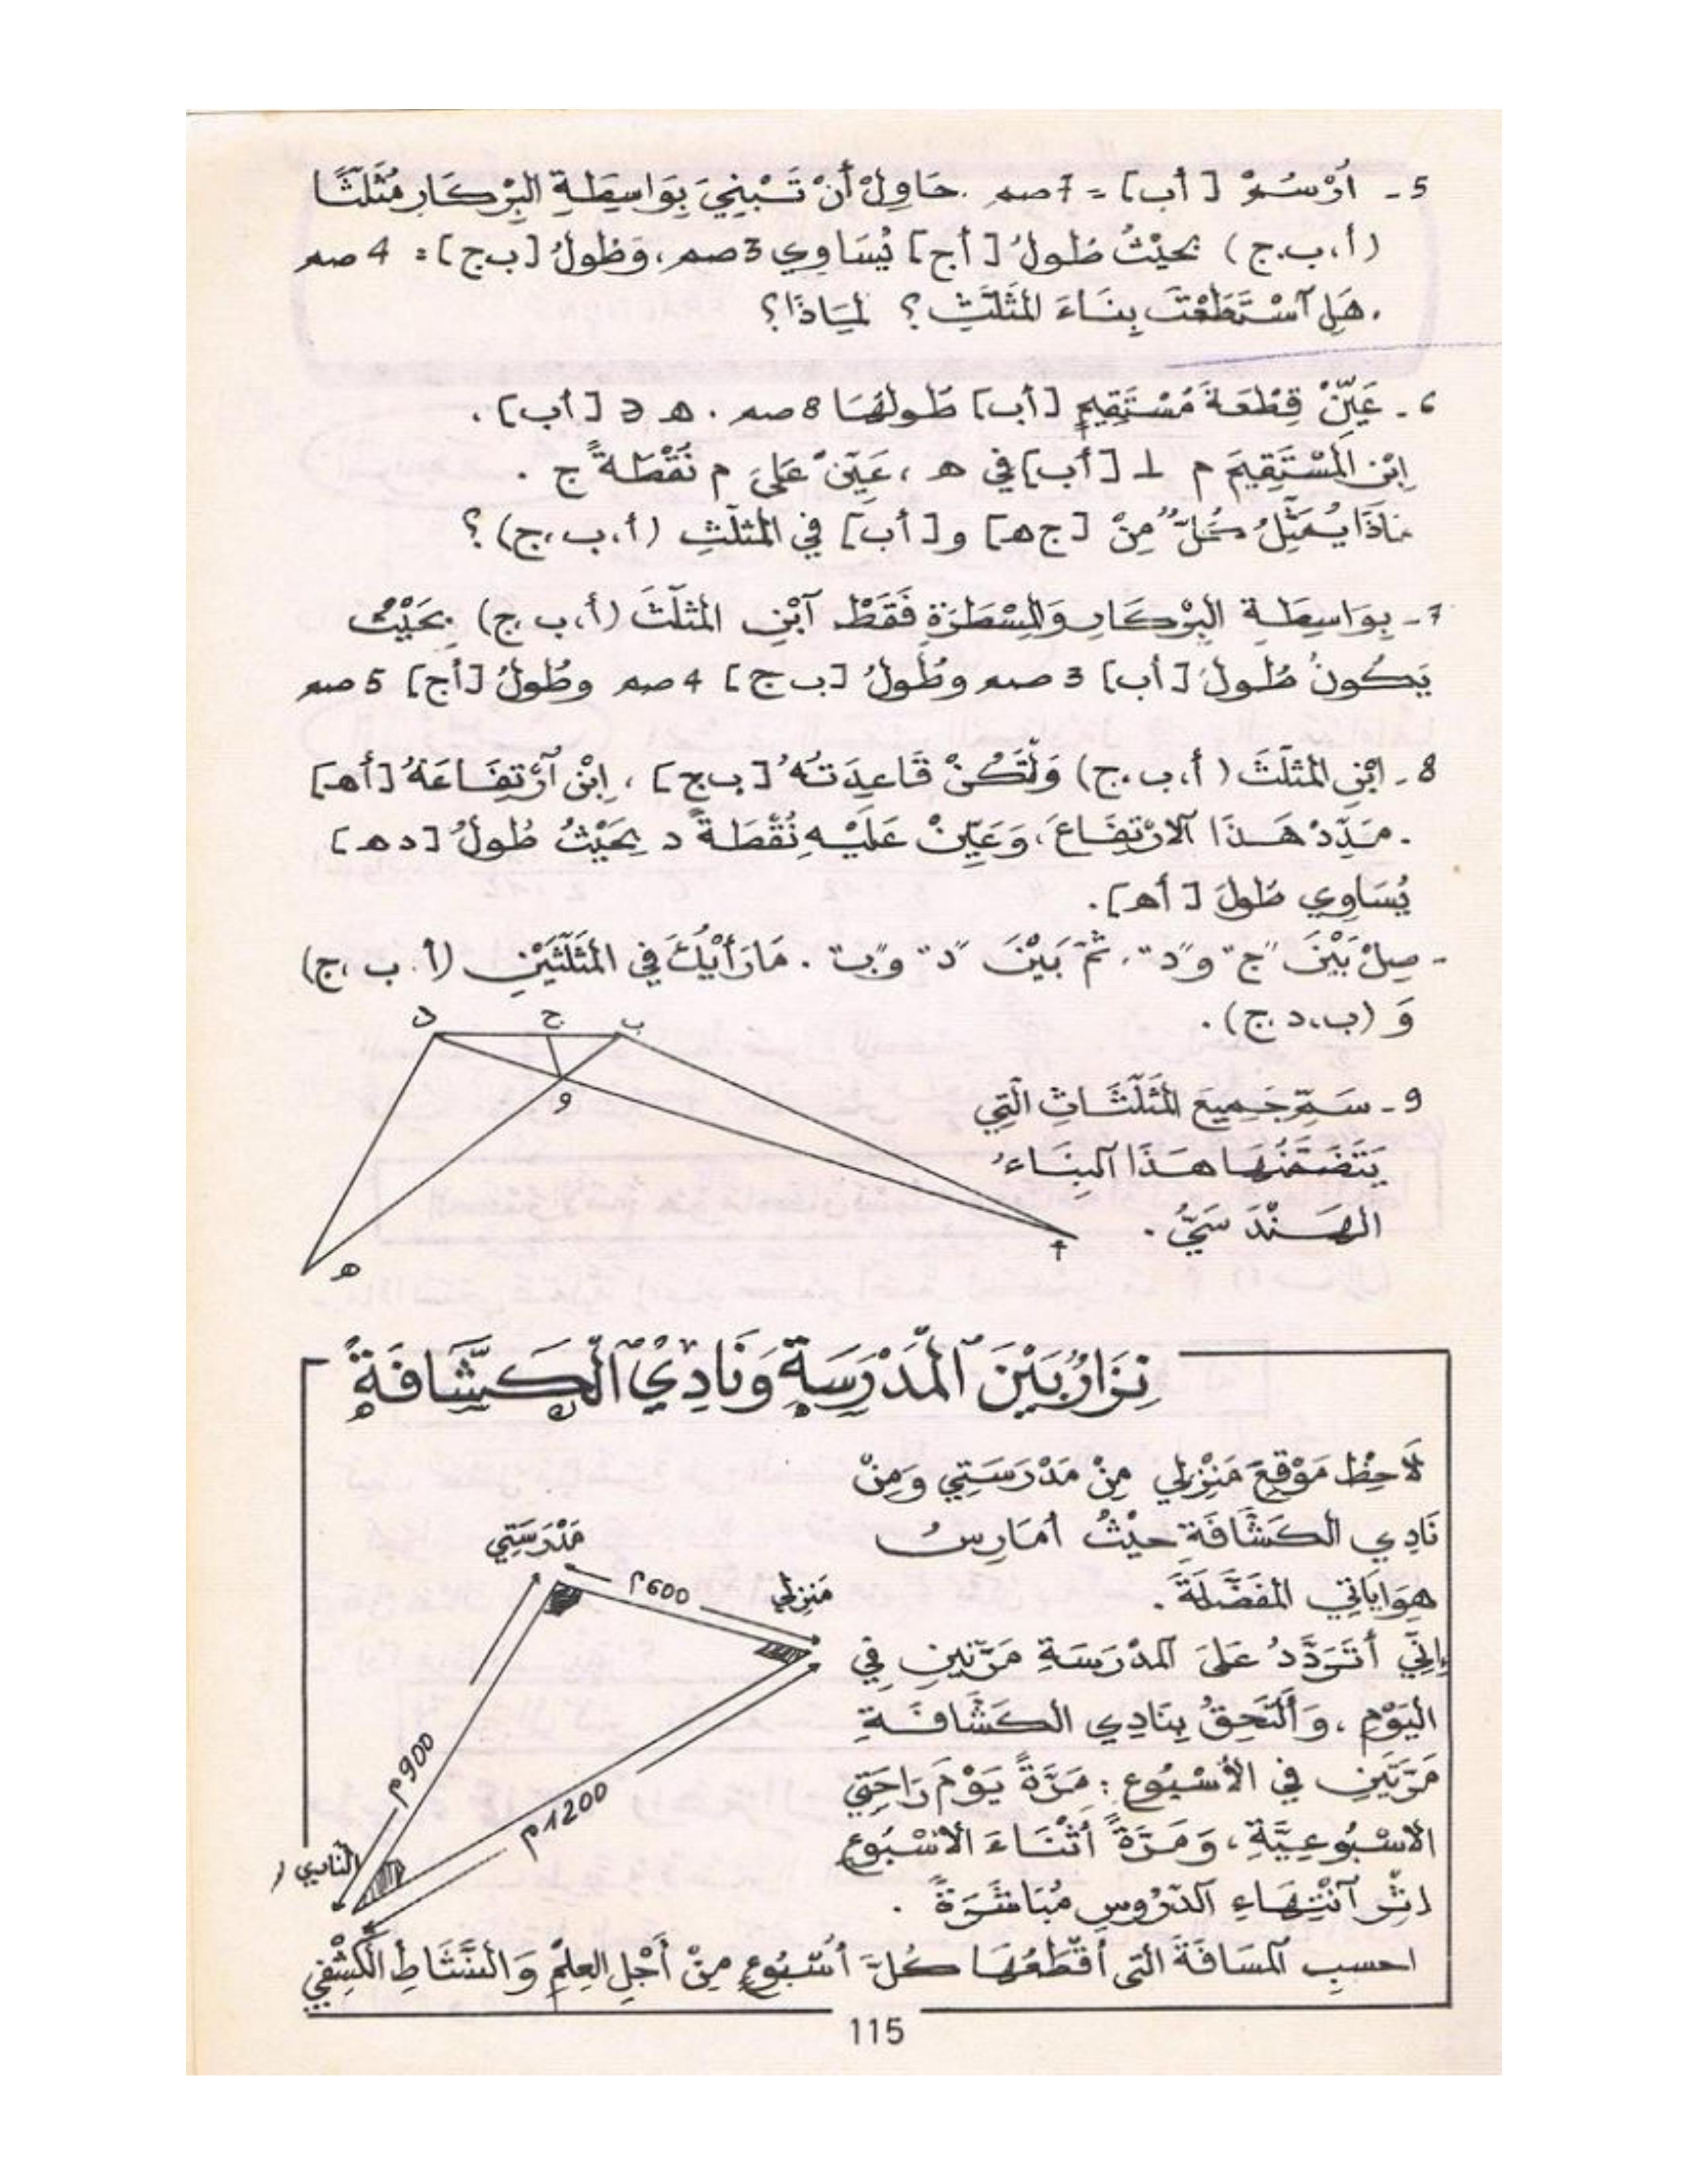 5 ـ أُرْسُمْ [أب] = 7 صم . حَاوِلْ أَنْ تَبْنِيَ بِوَاسِطَةِ البِرْكَارِ مُثَلَّثًا
(أ،ب،ج) بحَيْثُ طُولُ [أج] يُسَاوِي 3 صم، وَطُولُ [ب ج] = 4 صم
. هَلِ آسْتَطَعْتَ بِنَاءَ المُثَلَّثِ ؟ لِمَاذَا ؟
6 ـ عَيِّنْ قِطْعَةَ مُسْتَقِيمٍ [أب] طُولُهَا 8 صم . هـ ∈ [أب] .
اِبْنِ المُسْتَقِيمَ م ⊥ [أب] في هـ ، عَيِّنْ عَلَى م نُقْطَةً ج .
مَاذَا يُمَثِّلُ كُلٌّ مِنْ [ج هـ] و [أب] في المُثَلَّثِ (أ،ب،ج) ؟
7 ـ بِوَاسِطَةِ البِرْكَارِ وَالمِسْطَرَةِ فَقَطْ آبْنِ المُثَلَّثَ (أ،ب،ج) بِحَيْثُ
يَكُونُ طُولُ [أب] 3 صم وطُولُ [ب ج] 4 صم وطُولُ [أج] 5 صم
8 ـ ابْنِ المُثَلَّثَ (أ،ب،ج) وَلْتَكُنْ قَاعِدَتُهُ [ب ج] ، اِبْنِ آرْتِفَاعَهُ [أهـ]
. مَدِّدْ هَذَا الارْتِفَاعَ، وَعَيِّنْ عَلَيْهِ نُقْطَةً د بِحَيْثُ طُولُ [د هـ]
يُسَاوِي طُولَ [أهـ] .
ـ صِلْ بَيْنَ "ج" و"د"، ثُمَّ بَيْنَ "د" و"ب" . مَا رَأْيُكَ في المُثَلَّثَيْنِ (أ، ب ،ج)
وَ (ب،د،ج) .
د ج ب
9 ـ سَمِّ جَمِيعَ المُثَلَّثَاتِ الَّتِي
و
يَتَضَمَّنُهَا هَذَا البِنَاءُ
الهَنْدَسِيُّ .
أ
هـ
نِزَارُ بَيْنَ المَدْرَسَةِ وَنَادِي الكَشَّافَةِ
لَاحِظْ مَوْقِعَ مَنْزِلِي مِنْ مَدْرَسَتِي وَمِنْ
نَادِي الكَشَّافَةِ حيْثُ أمَارِسُ
هِوَايَاتِي المُفَضَّلَةَ .
إنِّي أَتَرَدَّدُ عَلَى المَدْرَسَةِ مَرَّتَيْنِ فِي
اليَوْمِ ، وَأَلْتَحِقُ بِنَادِي الكَشَّافَةِ
مَرَّتَيْنِ في الأُسْبُوعِ : مَرَّةً يَوْمَ رَاحَتِي
الأُسْبُوعِيَّةِ، وَمَرَّةً أَثْنَاءَ الأُسْبُوعِ
إثْرَ آنْتِهَاءِ الدُّرُوسِ مُبَاشَرَةً .
احسبِ المَسَافَةَ التي أَقْطَعُهَا كُلَّ أُسْبُوعٍ مِنْ أَجْلِ العِلْمِ وَالنَّشَاطِ الكَشْفِي
مَدْرَسَتِي
600م
مَنْزِلِي
900م
1200م
النادي
115